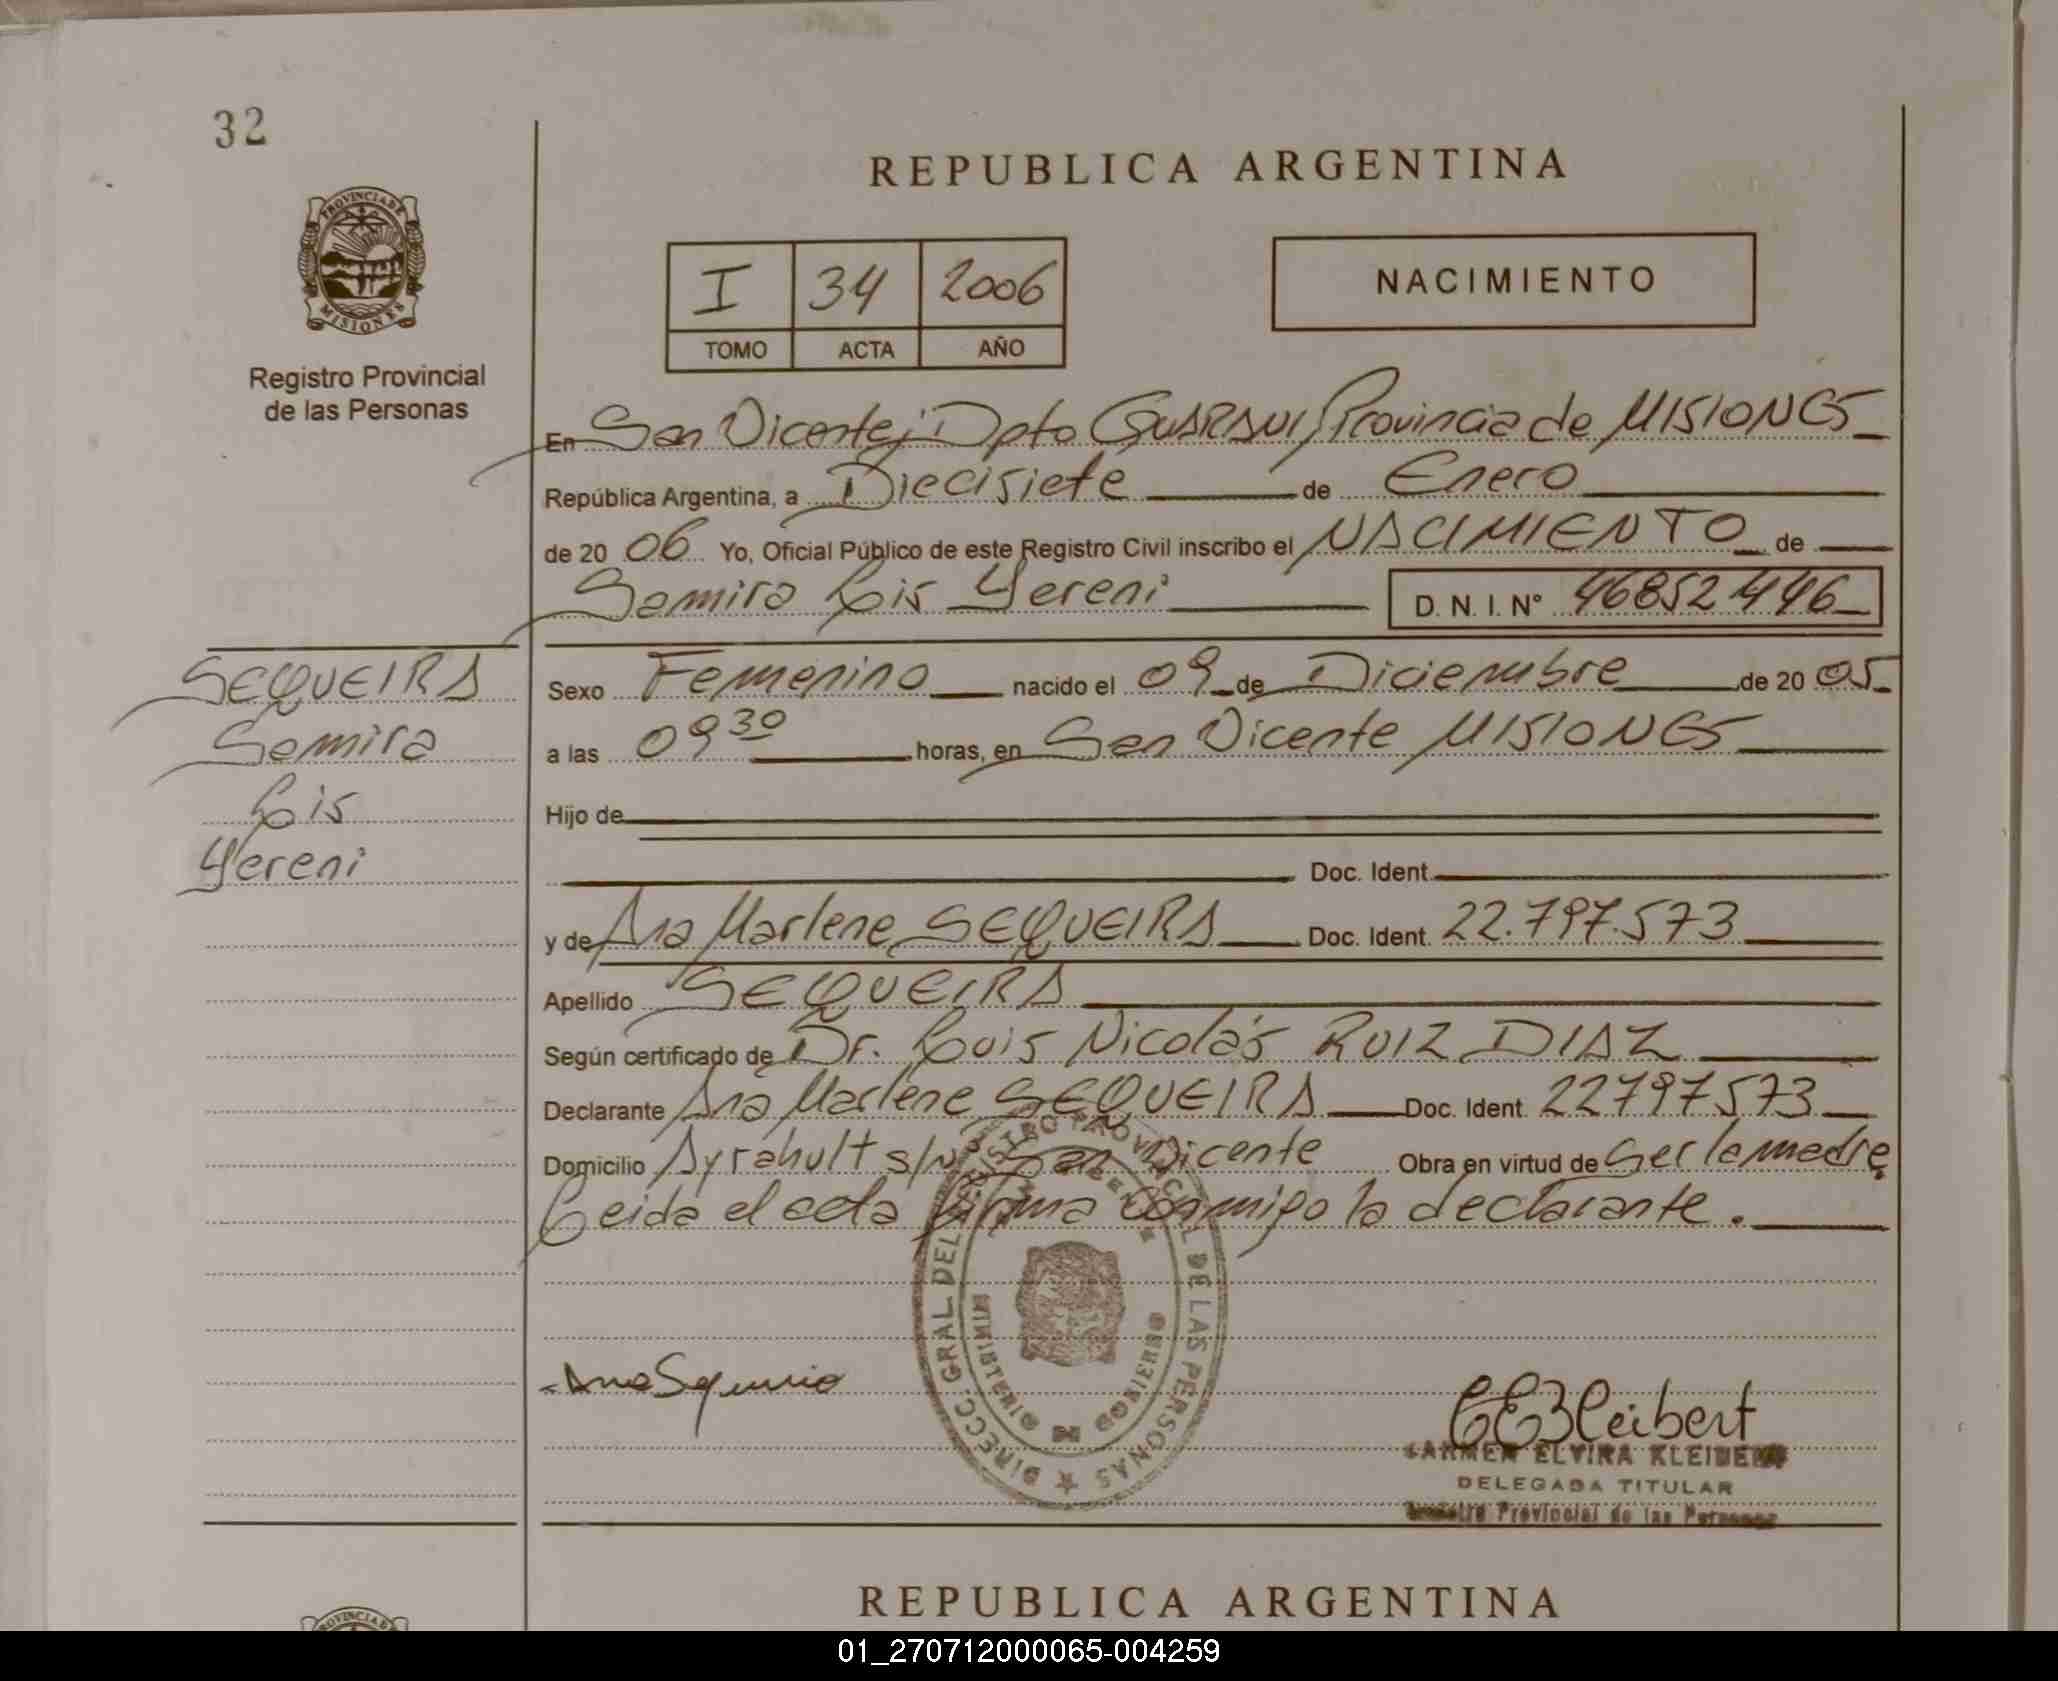 32
REPUBLICA ARGENTINA
PROVINCIA DE
MISIONES
Registro Provincial
de las Personas
I 34 2006
TOMO ACTA AÑO
NACIMIENTO
En San Vicente, Dpto GUARANI, Provincia de MISIONES
República Argentina, a Diecisiete de Enero
de 20 06 Yo, Oficial Público de este Registro Civil inscribo el NACIMIENTO de
Samira Lis Yereni D. N. I. Nº 46852446
SEQUEIRA
Samira
Lis
Yereni
Sexo Femenino nacido el 09 de Diciembre de 20 05
a las 09 30 horas, en San Vicente MISIONES
Hijo de
Doc. Ident.
y de Ana Marlene SEQUEIRA Doc. Ident. 22.797.573
Apellido SEQUEIRA
Según certificado de Dr. Luis Nicolás RUIZ DIAZ
Declarante Ana Marlene SEQUEIRA Doc. Ident 22797573
Domicilio s/Nº San Vicente Obra en virtud de ser la madre.
Leida el acta firma conmigo la declarante.
DIRECC. GRAL. DEL REGISTRO PROVINCIAL DE LAS PERSONAS
MINISTERIO DE GOBIERNO
CARMEN ELVIRA KLEIBERT
DELEGADA TITULAR
Registro Provincial de las Personas
REPUBLICA ARGENTINA
PROVINCIA DE
01_270712000065-004259